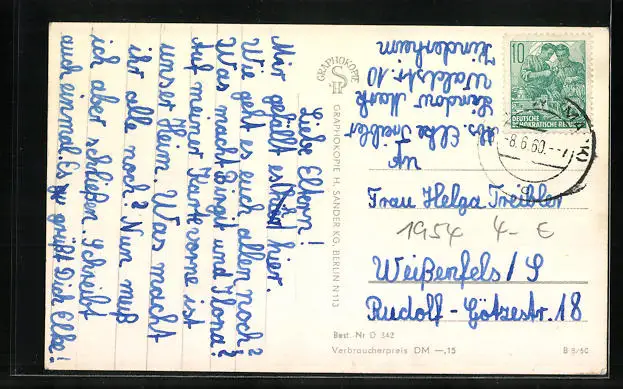 Liebe Eltern!
Mir gefällt es hier.
Wie geht es euch allen noch?
Was macht Birgit und Ilona?
Auf meiner Karte vorne ist
unser Heim. Was macht
ihr alle noch? Nun muß
ich aber schließen. Schreibt
auch einmal. Es grüßt Dich Elke!
GRAPHOKOPIE
SH
GRAPHOKOPIE H. SANDER KG. BERLIN N 113
Abs. Elke Treibler
Lindow Mark
Waldstr. 10
Kinderheim
10
DEUTSCHE
DEMOKRATISCHE REPUBLIK
-8.6.60.--7
An
Frau Helga Treibler
1954 4- €
Weißenfels/S
Rudolf-Götzestr. 18
Best. Nr D 342
Verbraucherpreis DM —,15
B 8/60